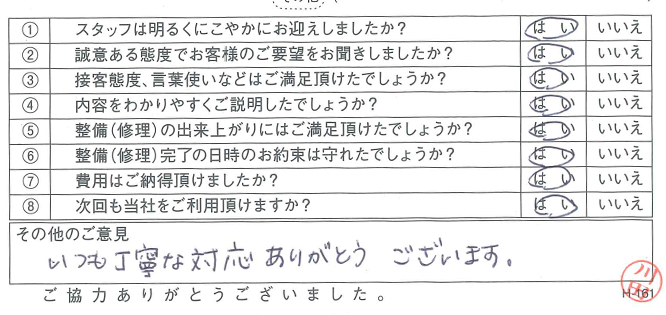 その他
① スタッフは明るくにこやかにお迎えしましたか? はい いいえ
② 誠意ある態度でお客様のご要望をお聞きしましたか? はい いいえ
③ 接客態度、言葉使いなどはご満足頂けたでしょうか? はい いいえ
④ 内容をわかりやすくご説明したでしょうか? はい いいえ
⑤ 整備(修理)の出来上がりにはご満足頂けたでしょうか? はい いいえ
⑥ 整備(修理)完了の日時のお約束は守れたでしょうか? はい いいえ
⑦ 費用はご納得頂けましたか? はい いいえ
⑧ 次回も当社をご利用頂けますか? はい いいえ
その他のご意見
いつも丁寧な対応ありがとうございます。
ご協力ありがとうございました。
H-161